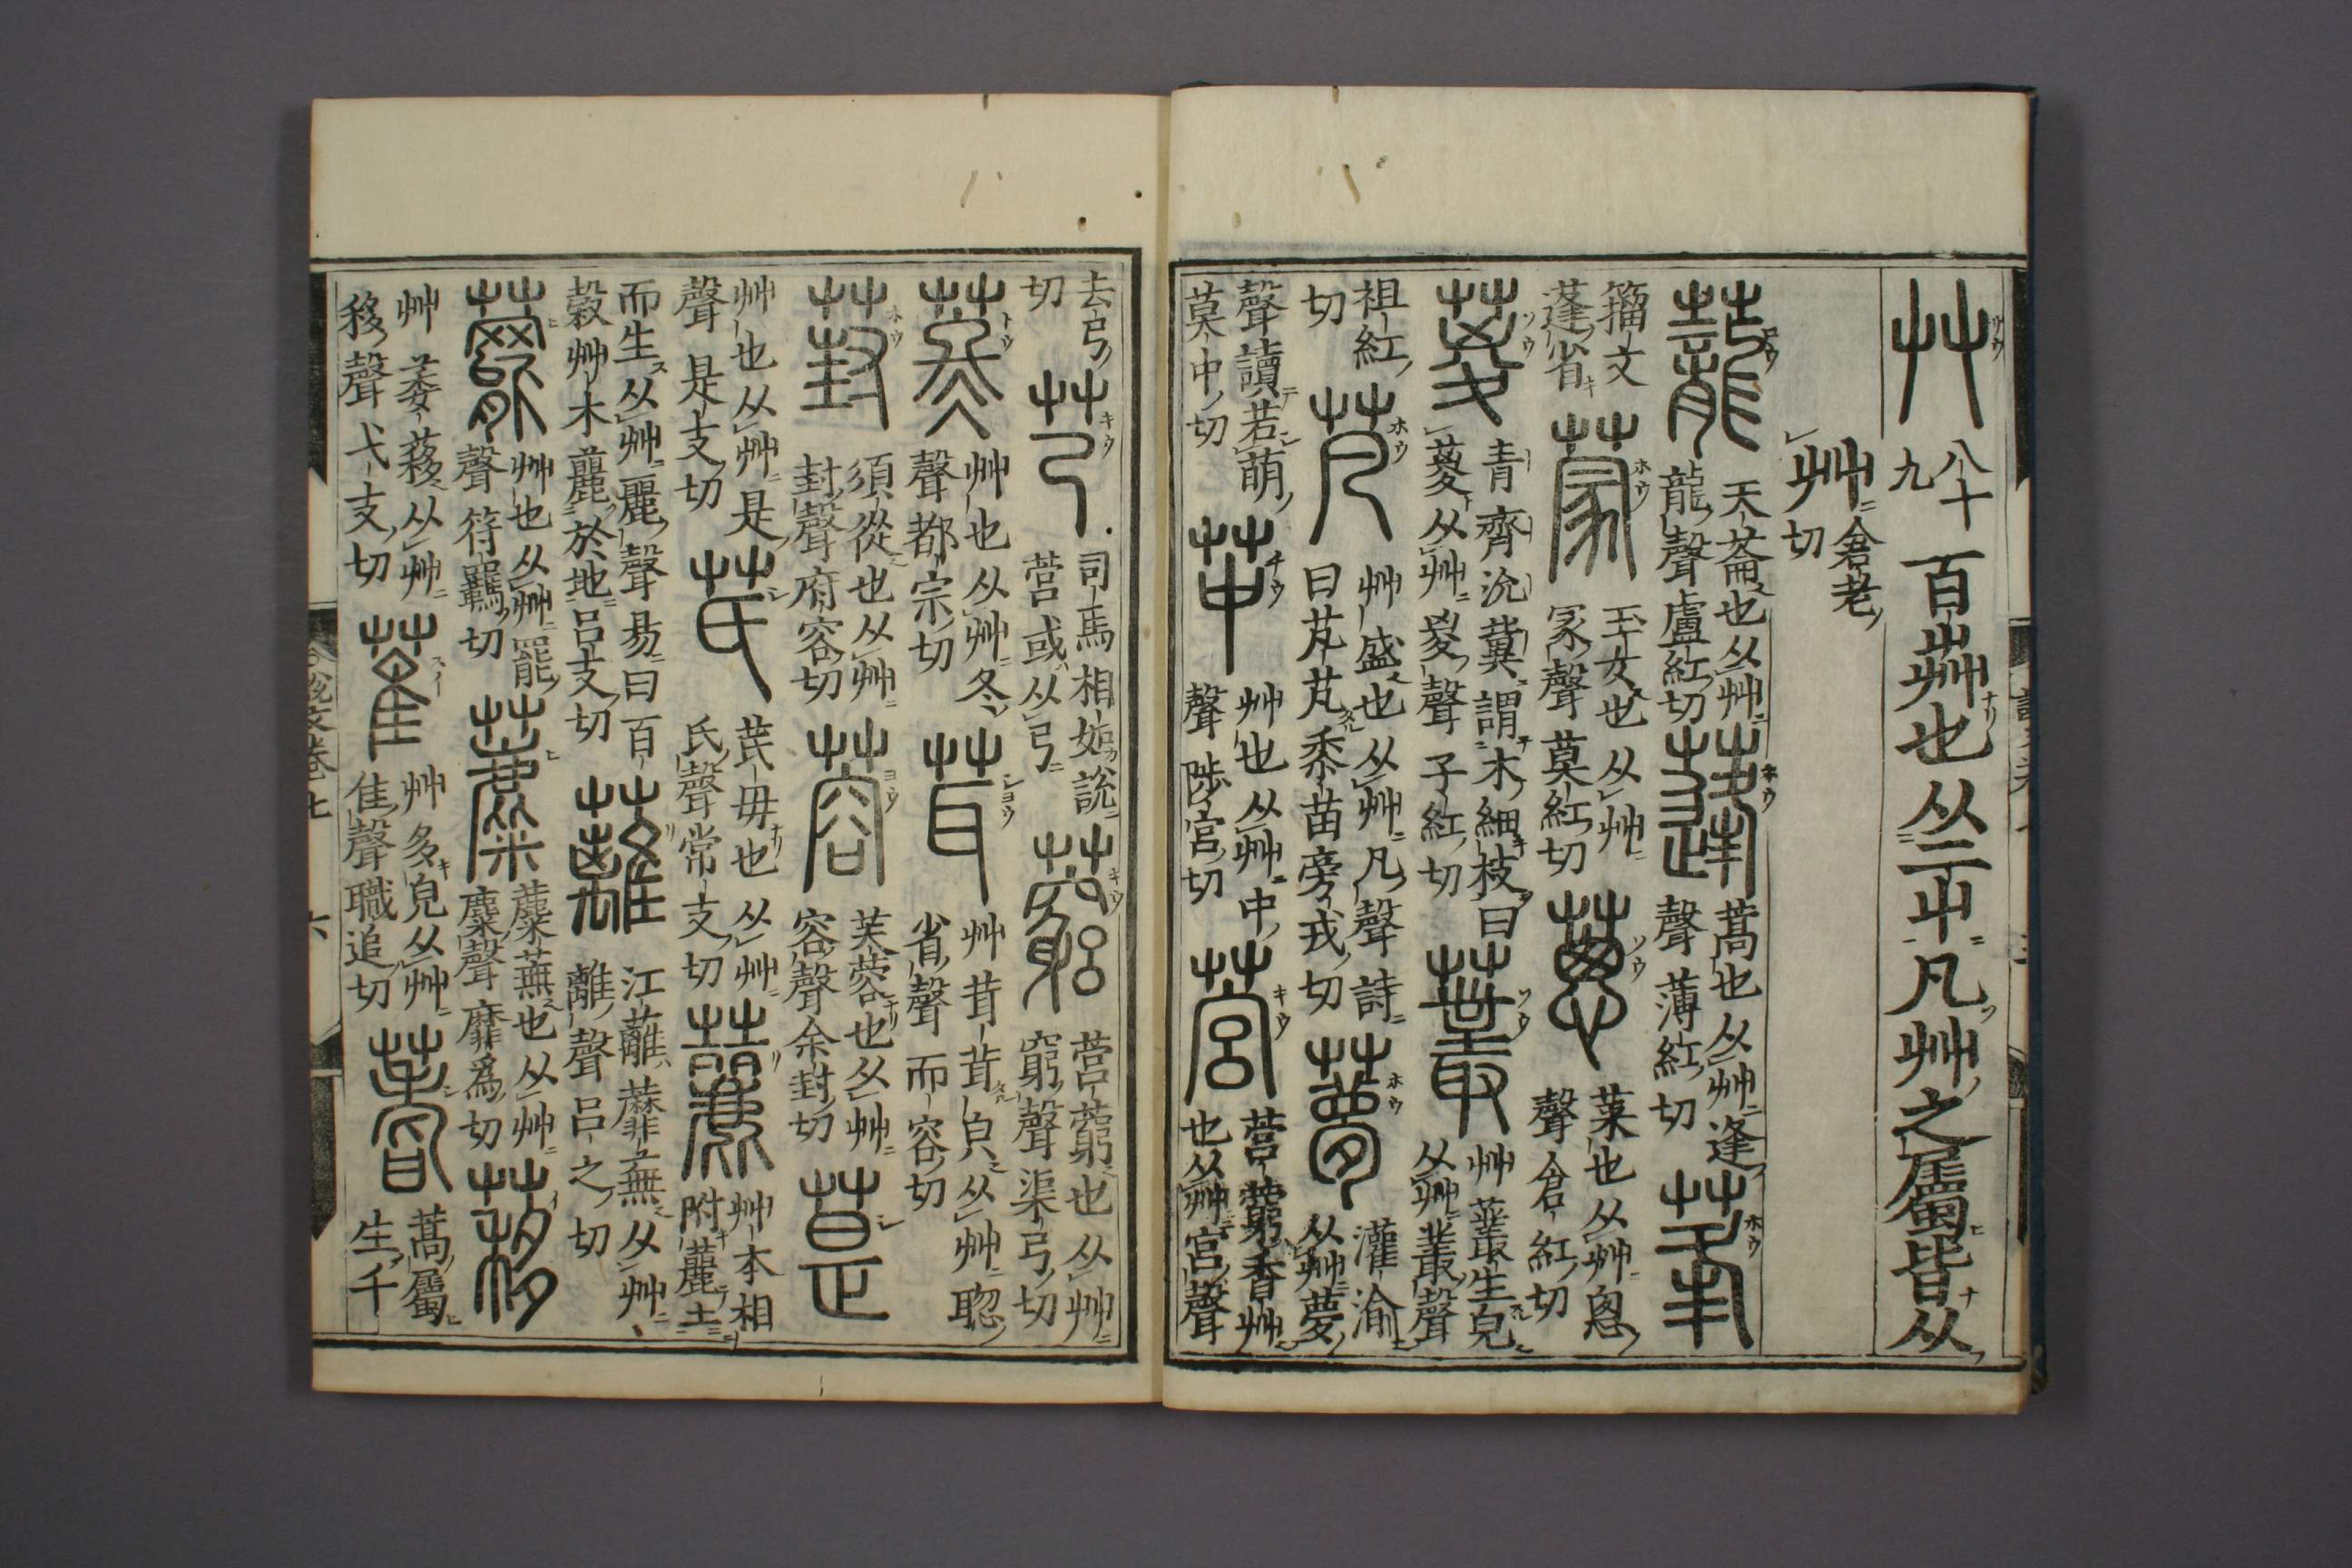 艸
八十
九
百芔也从二屮凡艸之屬皆从
艸
倉老
切
蘢
天蘥也从艸
龍聲盧紅切
蓬
蒿也从艸逢
聲薄紅切
𦯈
籀文
蓬省
蒙
王女也从艸
冡聲莫紅切
蔥
菜也从艸悤
聲倉紅切
葼
青齊沇冀謂木細枝曰
葼从艸㚇聲子紅切
叢
艸叢生皃
从艸叢聲
徂紅
切
芃
艸盛也从艸凡聲詩
曰芃芃黍苗旁戎切
夢
灌渝
从艸夢
聲讀若萌
莫中切
苹
艸也从艸中
聲陟宮切
营
营藭香艸
也从艸宮聲
去弓
切
芎
司馬相如說
营或从弓
藭
营藭也从艸
窮聲渠弓切
苳
艸也从艸冬
聲都宗切
茸
艸茸茸皃从艸聰
省聲而容切
葑
須從也从艸
封聲府容切
蓉
芙蓉也从艸
容聲余封切
萛
艸也从艸是
聲是支切
芪
芪毋也从艸
氏聲常支切
䕻
艸木相
附䕻土
而生从艸麗聲易曰百
穀艸木䕻於地呂支切
蘺
江蘺蘼蕪从艸
離聲呂之切
䕷
艸也从艸罷
聲符羈切
蘪
蘪蕪也从艸
麋聲靡爲切
䔟
艸萎䔟从艸
移聲弋支切
萑
艸多皃从艸
隹聲職追切
蓍
蒿屬
生千
說文卷七
六